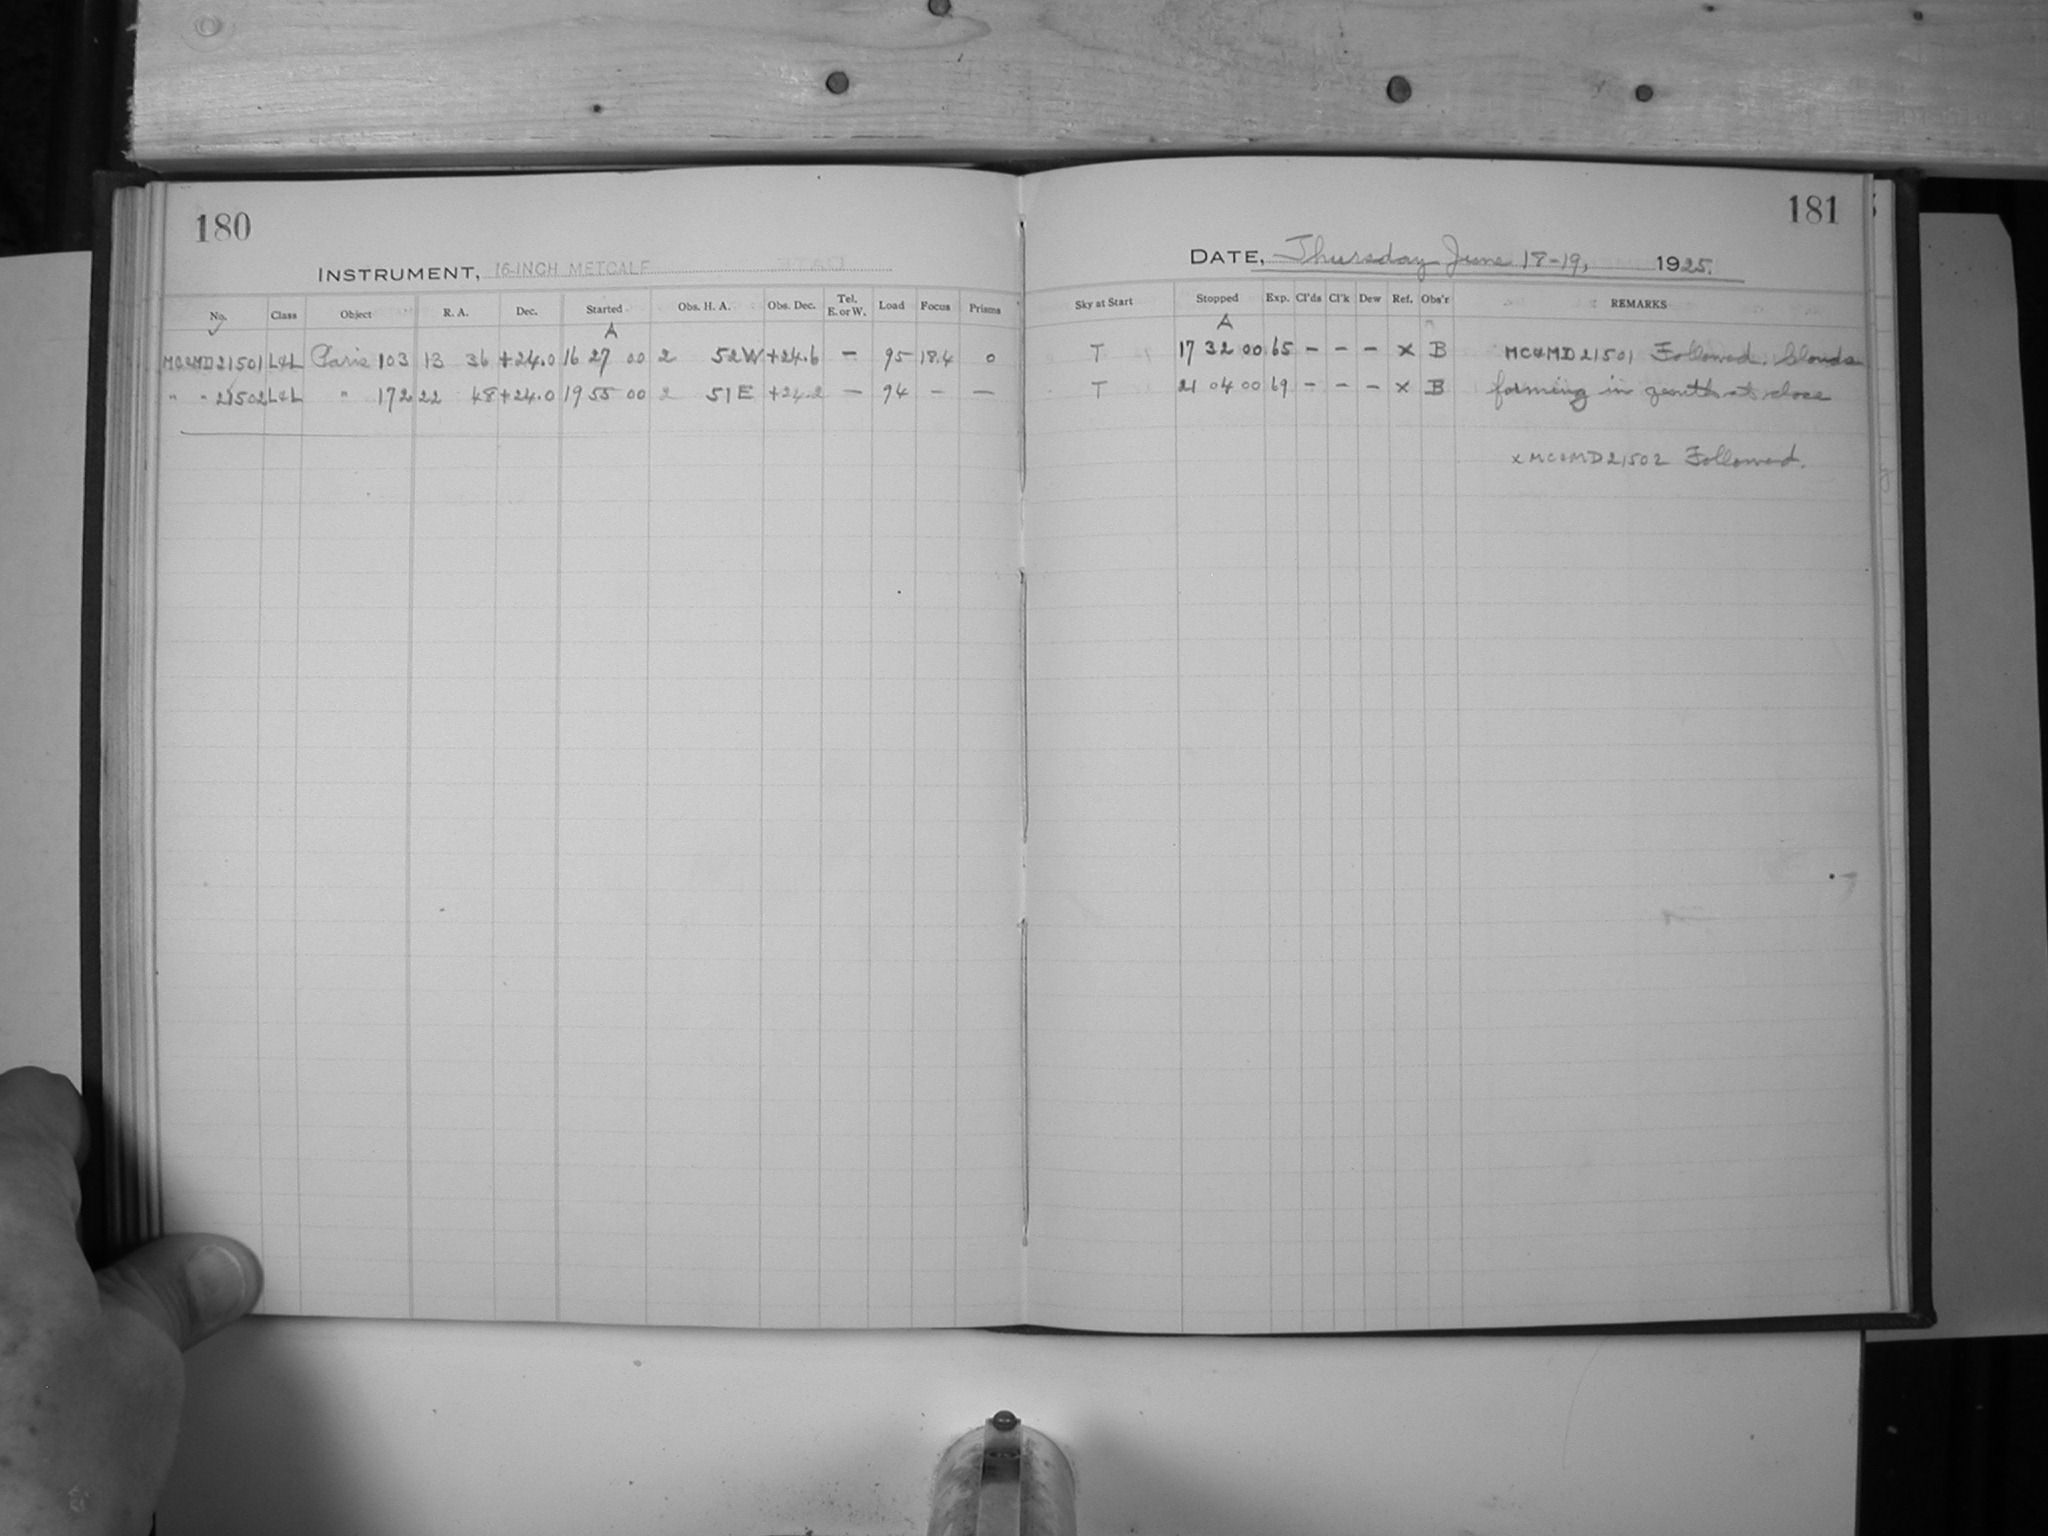 180
INSTRUMENT, 16-INCH METCALF
No. Class Object R. A. Dec. Started Obs. H. A. Obs. Dec. Tel. E. or W. Load Focus Prisms
A
MC&MD21501 L&L Paris 103 13 36 +24.0 16 27 00 2 52W +24.6 - 95 18.4 0
" " 21502 L&L " 172 22 48 +24.0 19 55 00 2 51E +24.2 - 94 - -
181
DATE, Thursday June 18-19, 1925.
Sky at Start Stopped Exp. Cl'ds Cl'k Dew Ref. Obs'r REMARKS
A
T 17 32 00 65 - - - x B MC&MD21501 Followed. Clouds
T 21 04 00 69 - - - x B forming in zenith at close
x MC&MD21502 Followed.